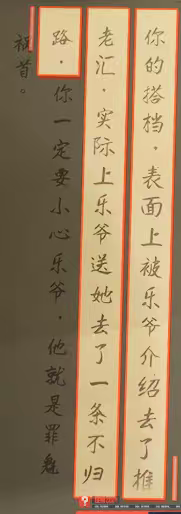 你的搭档，表面上被乐爷介绍去了推
老汇，实际上乐爷送她去了一条不归
路，你一定要小心乐爷，他就是罪魁
祸首。